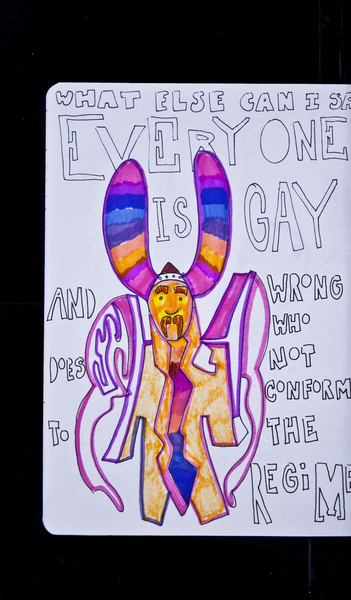 WHAT ELSE CAN I SA
EVERYONE
IS GAY
AND WRONG
WHO
DOES NOT
CONFORM
TO THE
REGIME